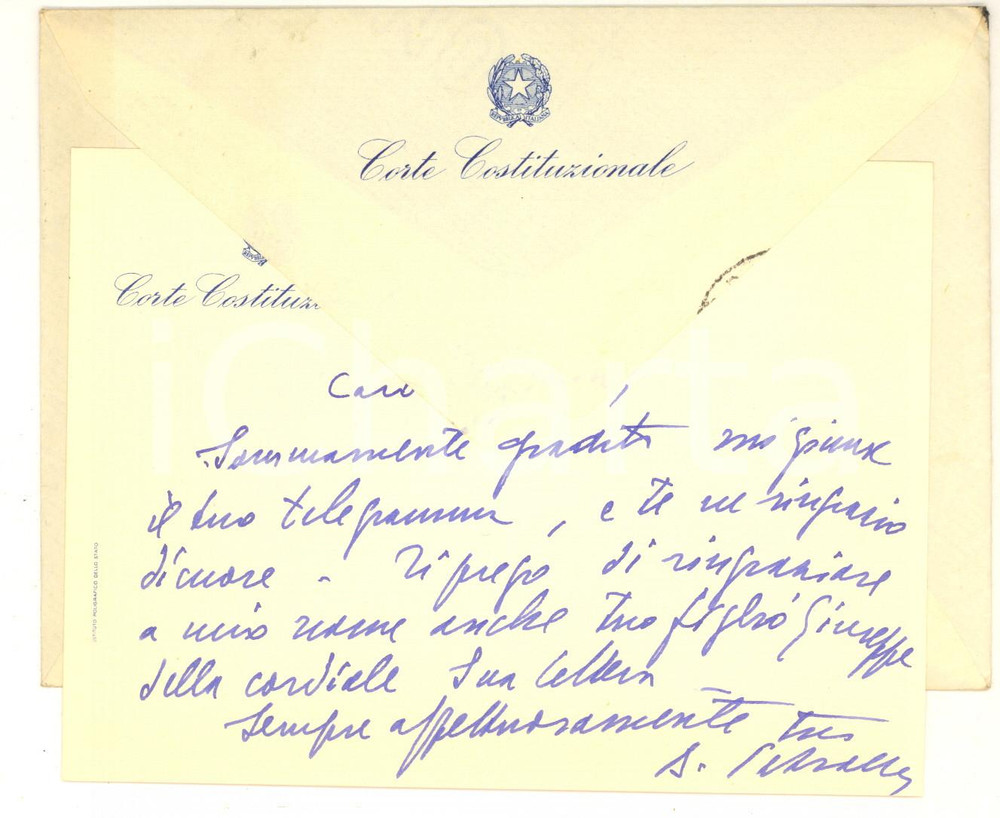 REPVBBLICA ITALIANA
Corte Costituzionale
Corte Costituzi
iCharta
Caro
Sommamente gradito mi giunse
il tuo telegramma, e te ne ringrazio
di cuore - Ti prego di ringraziare
a mio nome anche tuo figlio Giuseppe
della cordiale Sua lettera -
Sempre affettuosamente tuo
ISTITUTO POLIGRAFICO DELLO STATO